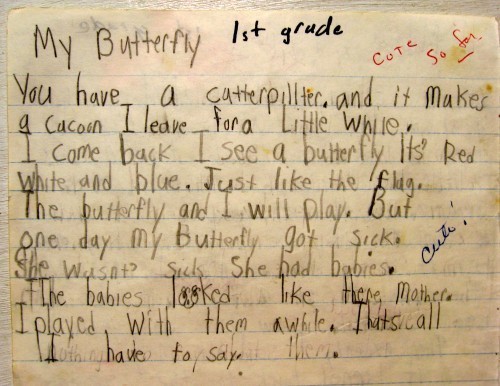 My Butterfly 1st grade
cute so far
You have a catterpillter. and it makes
a cacoon I leave for a Little while.
I come back I see a butterfly Its' Red
white and blue. Just like the flag.
The butterfly and I will play. But
one day my Butterfly got sick.
cute!
She wasnt' sick She had babies.
The babies looked like there Mother.
I played with them awhile. Thats all
I have to say.